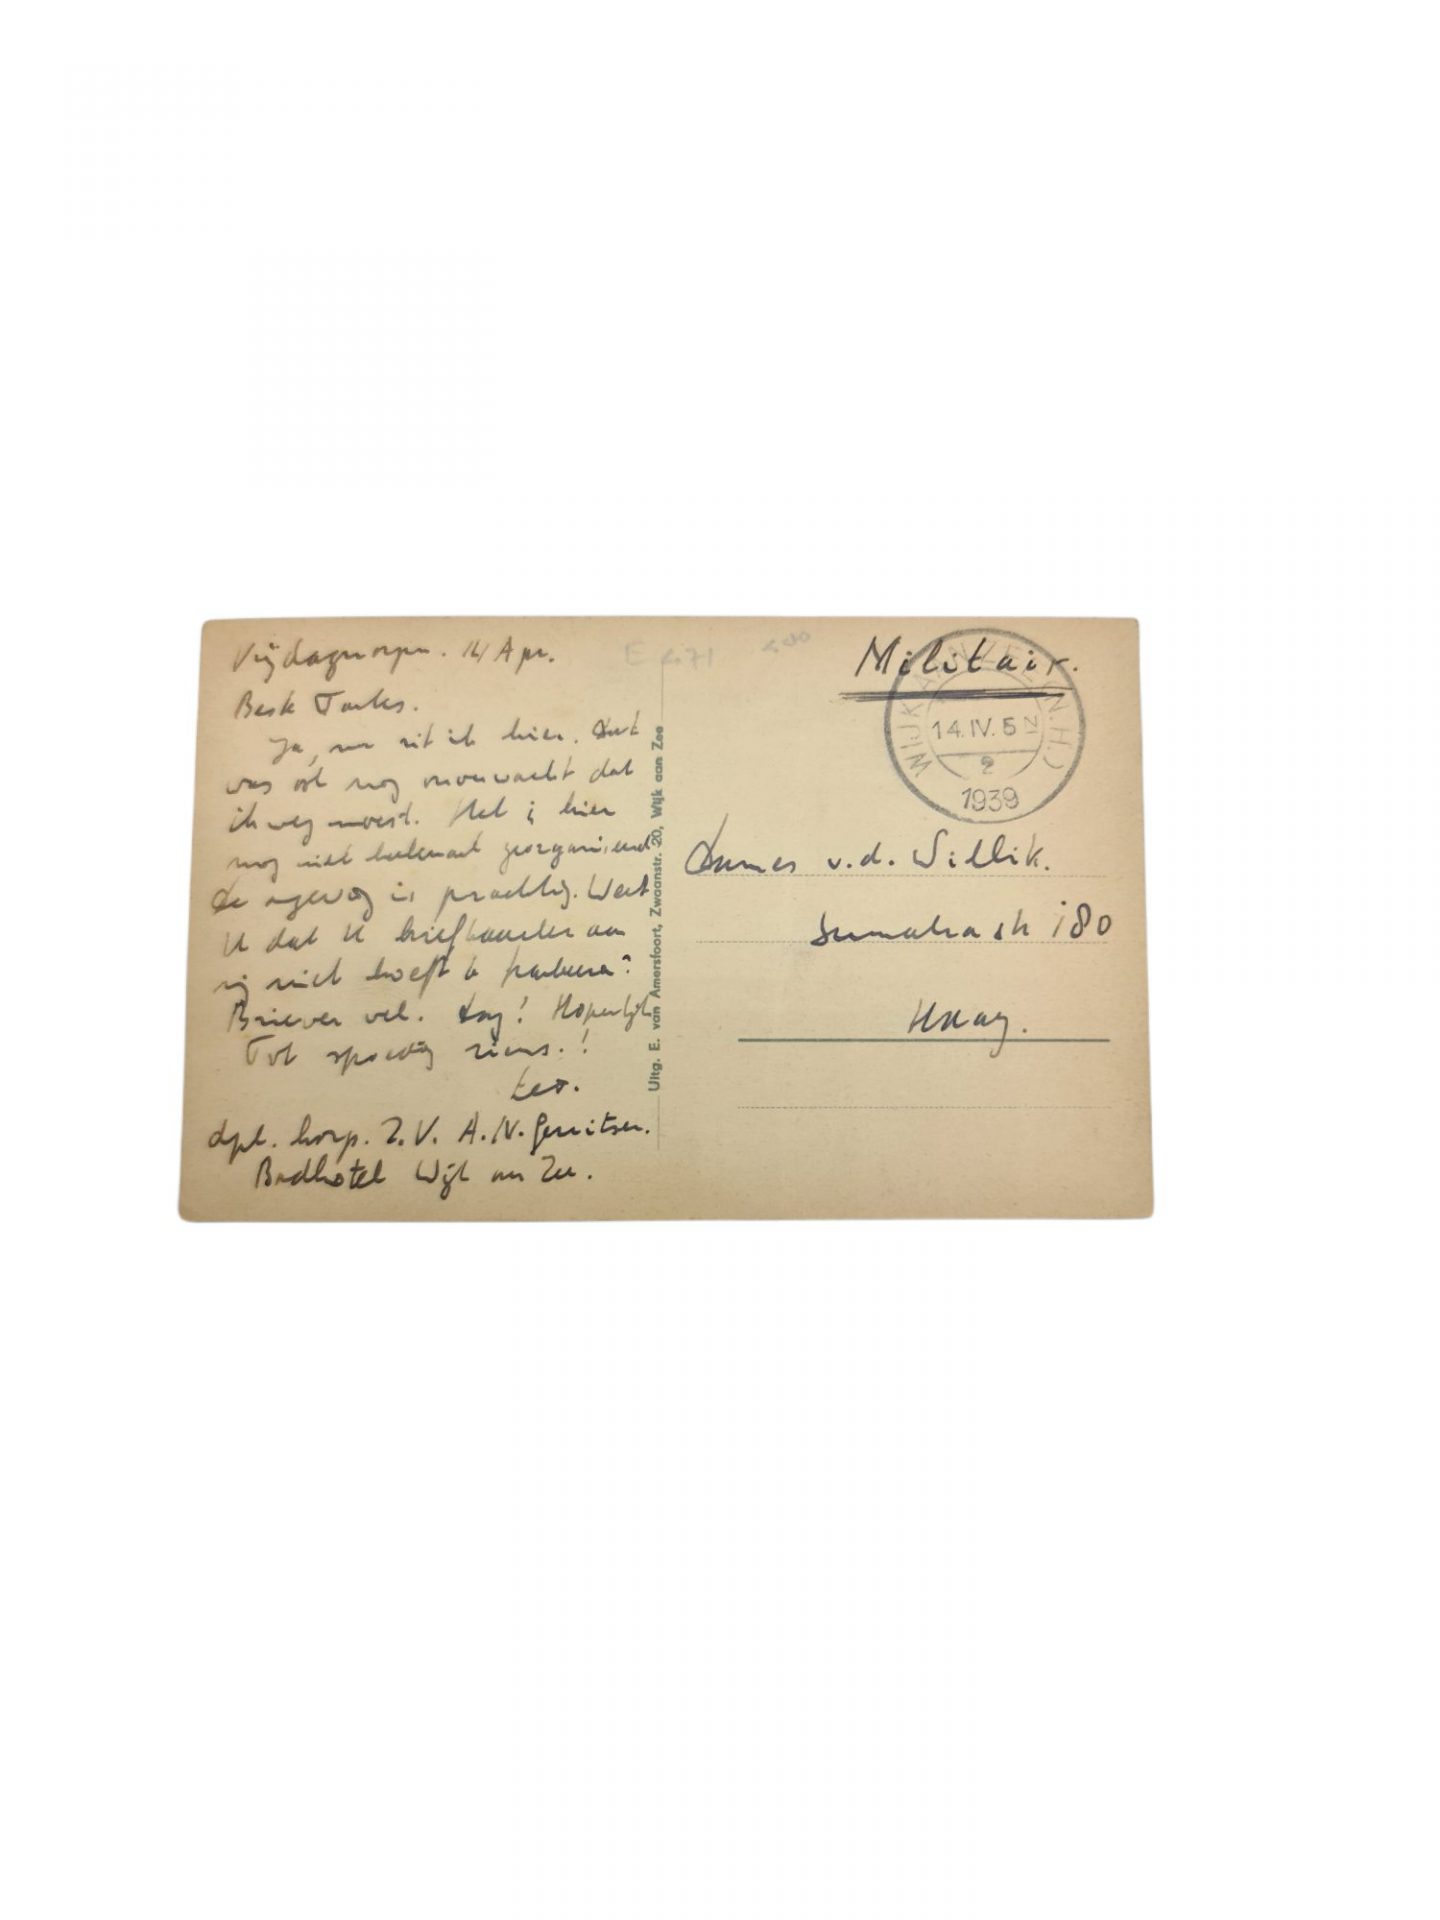 Vrijdagmorgen. 14 Apr.
Beste Tantes.
Ja, nu zit ik hier. Dat
was ook nog onverwacht dat
ik weg moest. Het is hier
nog niet helemaal georganiseerd
De omgeving is prachtig. Weet
U dat U briefkaarten aan
mij niet hoeft te frankeren?
Brieven wel. Dag! Hopelijk
Tot spoedig ziens.!
dpl. korp. Z.V. A.N. Gerritsen.
Badhotel Wijk aan Zee.
Uitg. E. van Amersfoort, Zwaanstr. 20, Wijk aan Zee
E
Militair.
WIJK AAN ZEE (N.H.)
14.IV.5 N
2
1939
Dames v.d. Willik.
Sumatrastr 180
Haag.